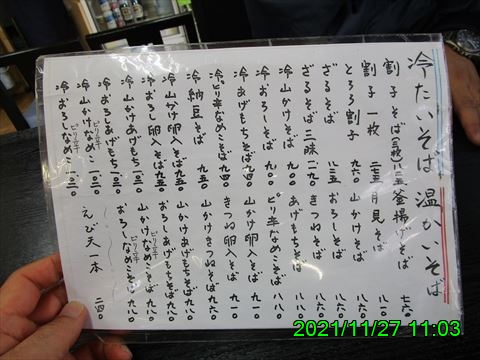 冷たいそば 温かいそば
割子そば(三枚) 八二五 釜揚げそば 七六〇
割子 一枚 二七五 月見そば
とろろ割子 山かけそば
ざるそば 八三五 おろしそば
ざるそば 三味 きつねそば
冷 山かけそば あげもちそば
冷 おろしそば 九〇〇 ピリ辛なめこそば
冷 あげもちそば 山かけ卵入そば 九一〇
冷 ピリ辛なめこそば 九四〇 きつね卵入そば 九一〇
冷 納豆そば 山かけきつねそば
冷 山かけ卵入そば 九五〇 山かけあげもちそば 九八〇
冷 おろし卵入そば 九五〇 おろしあげもちそば 九八〇
冷 おろしあげもち 山かけピリ辛なめこそば 九八〇
冷 山かけピリ辛なめこ おろしピリ辛なめこそば 九八〇
冷 おろしピリ辛なめこ えび天一本 二四〇
2021/11/27 11:03